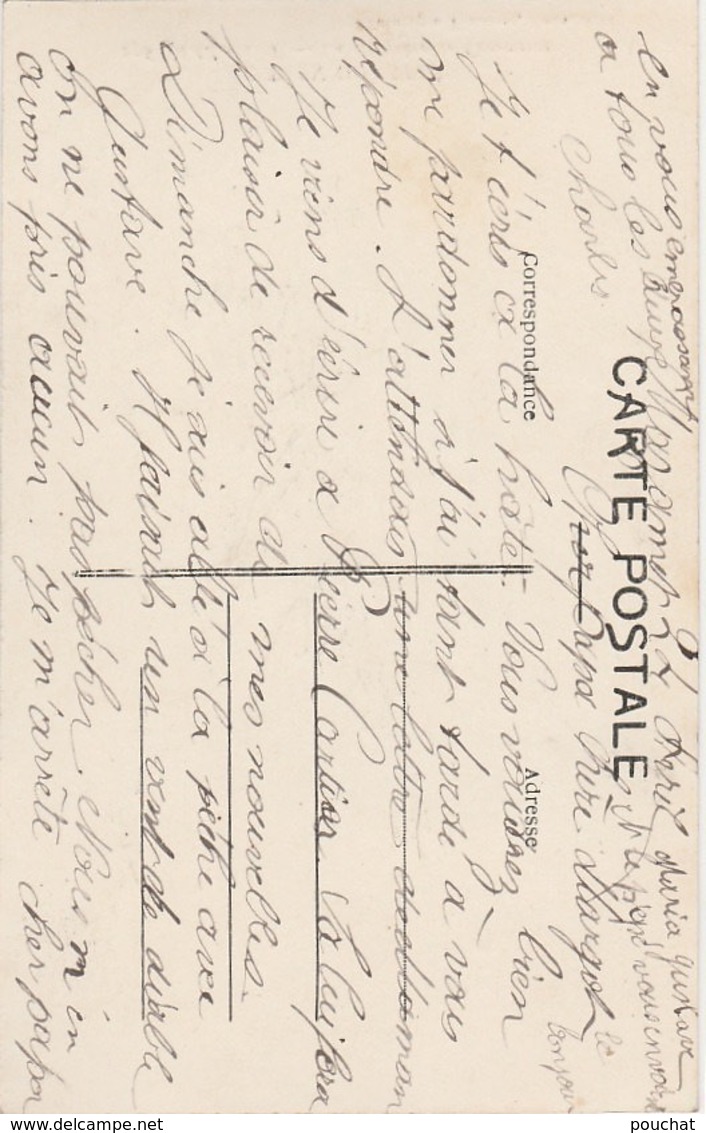 CARTE POSTALE
Correspondance
Adresse
2 Avril
Cher Papa Mère Margot
Je t'écris à la hâte. Vous voudrez bien
me pardonner si j'ai tant tardé à vous
répondre. J'attendais une lettre de maman
Je viens d'écrire à Pierre Cartier. Ça lui fera
plaisir de recevoir de mes nouvelles.
Dimanche je suis allé à la pêche avec
Gustave. Il faisait un vent de diable
on ne pouvait pas pêcher. Nous n'en
avons pris aucun. Je m'arrête cher papa
en vous embrassant
à tous les
Charles
Maria Gustave
vous envoient
le bonjour
pouchat